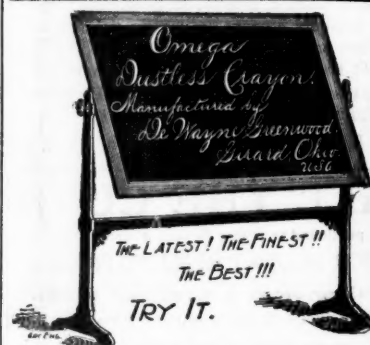 Omega
Dustless Crayon.
Manufactured by
De Wayne Greenwood.
Girard, Ohio.
THE LATEST! THE FINEST!!
THE BEST!!!
TRY IT.